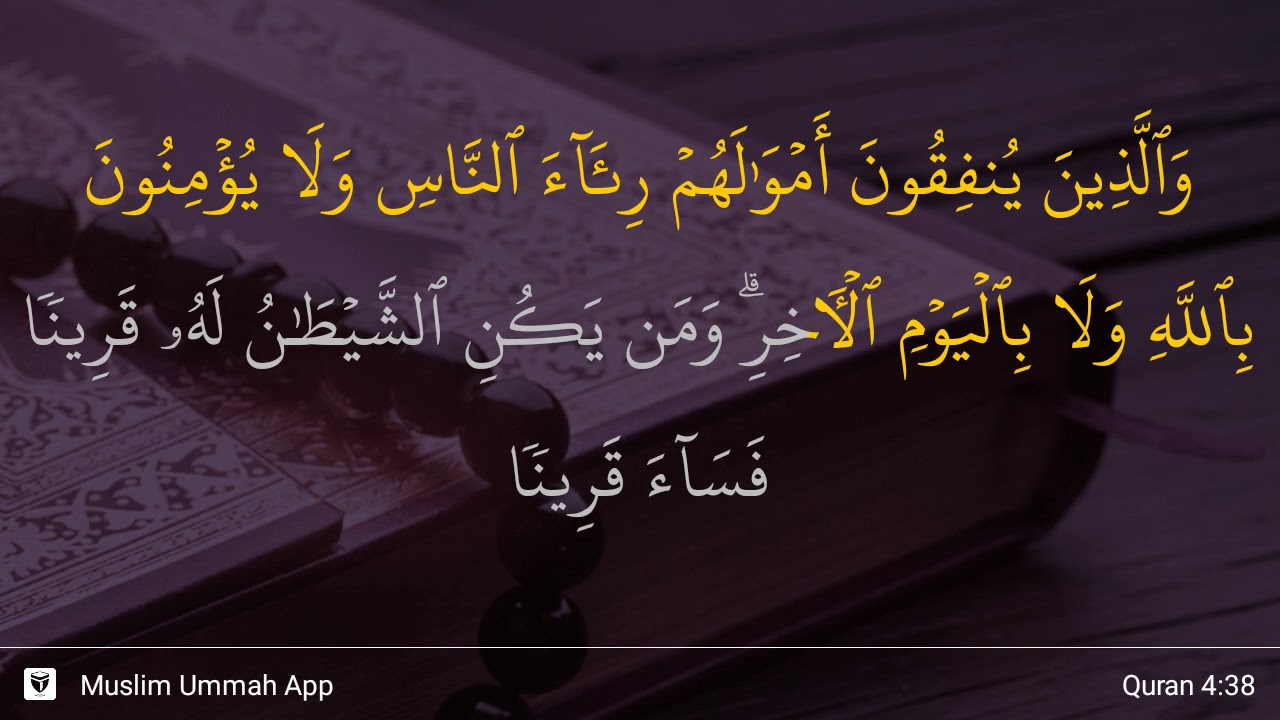 وَٱلَّذِينَ يُنفِقُونَ أَمْوَٰلَهُمْ رِئَآءَ ٱلنَّاسِ وَلَا يُؤْمِنُونَ
بِٱللَّهِ وَلَا بِٱلْيَوْمِ ٱلْأَخِرِ ۗ وَمَن يَكُنِ ٱلشَّيْطَٰنُ لَهُۥ قَرِينًا
فَسَآءَ قَرِينًا
Muslim Ummah App
Quran 4:38